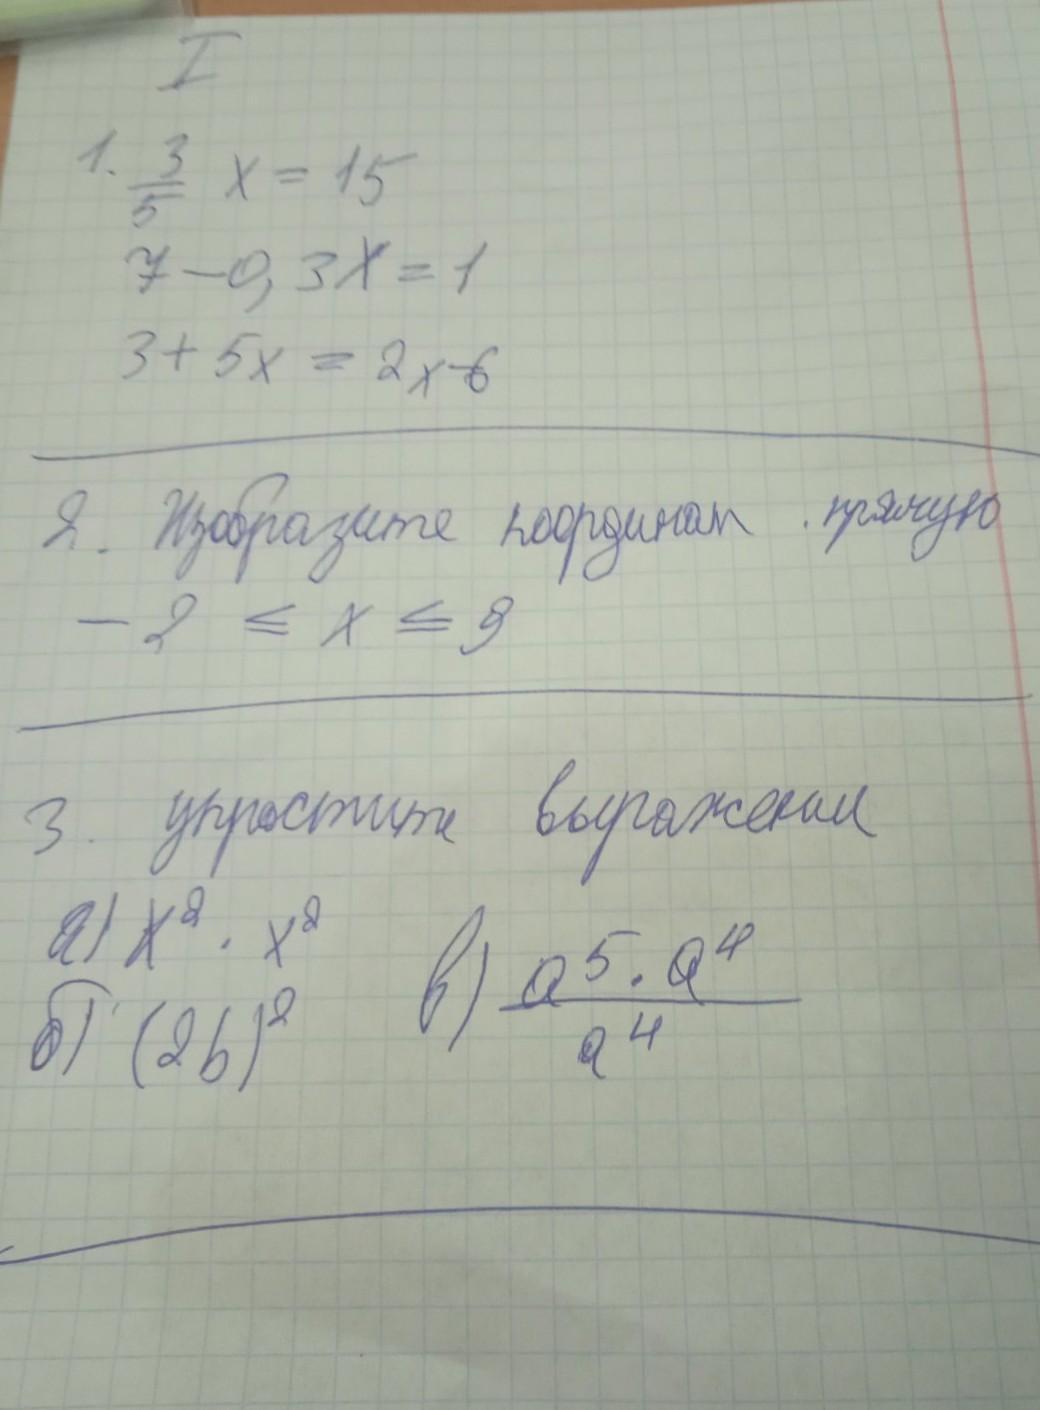 I
1. 3/5 x = 15
7 - 0,3x = 1
3 + 5x = 2x - 6
2. Изобразите координат. прямую
- 2 ≤ x ≤ 9
3. упростите выражения
а) x² · x²
б) (2b)²
в) a⁵ · a⁴ / a⁴